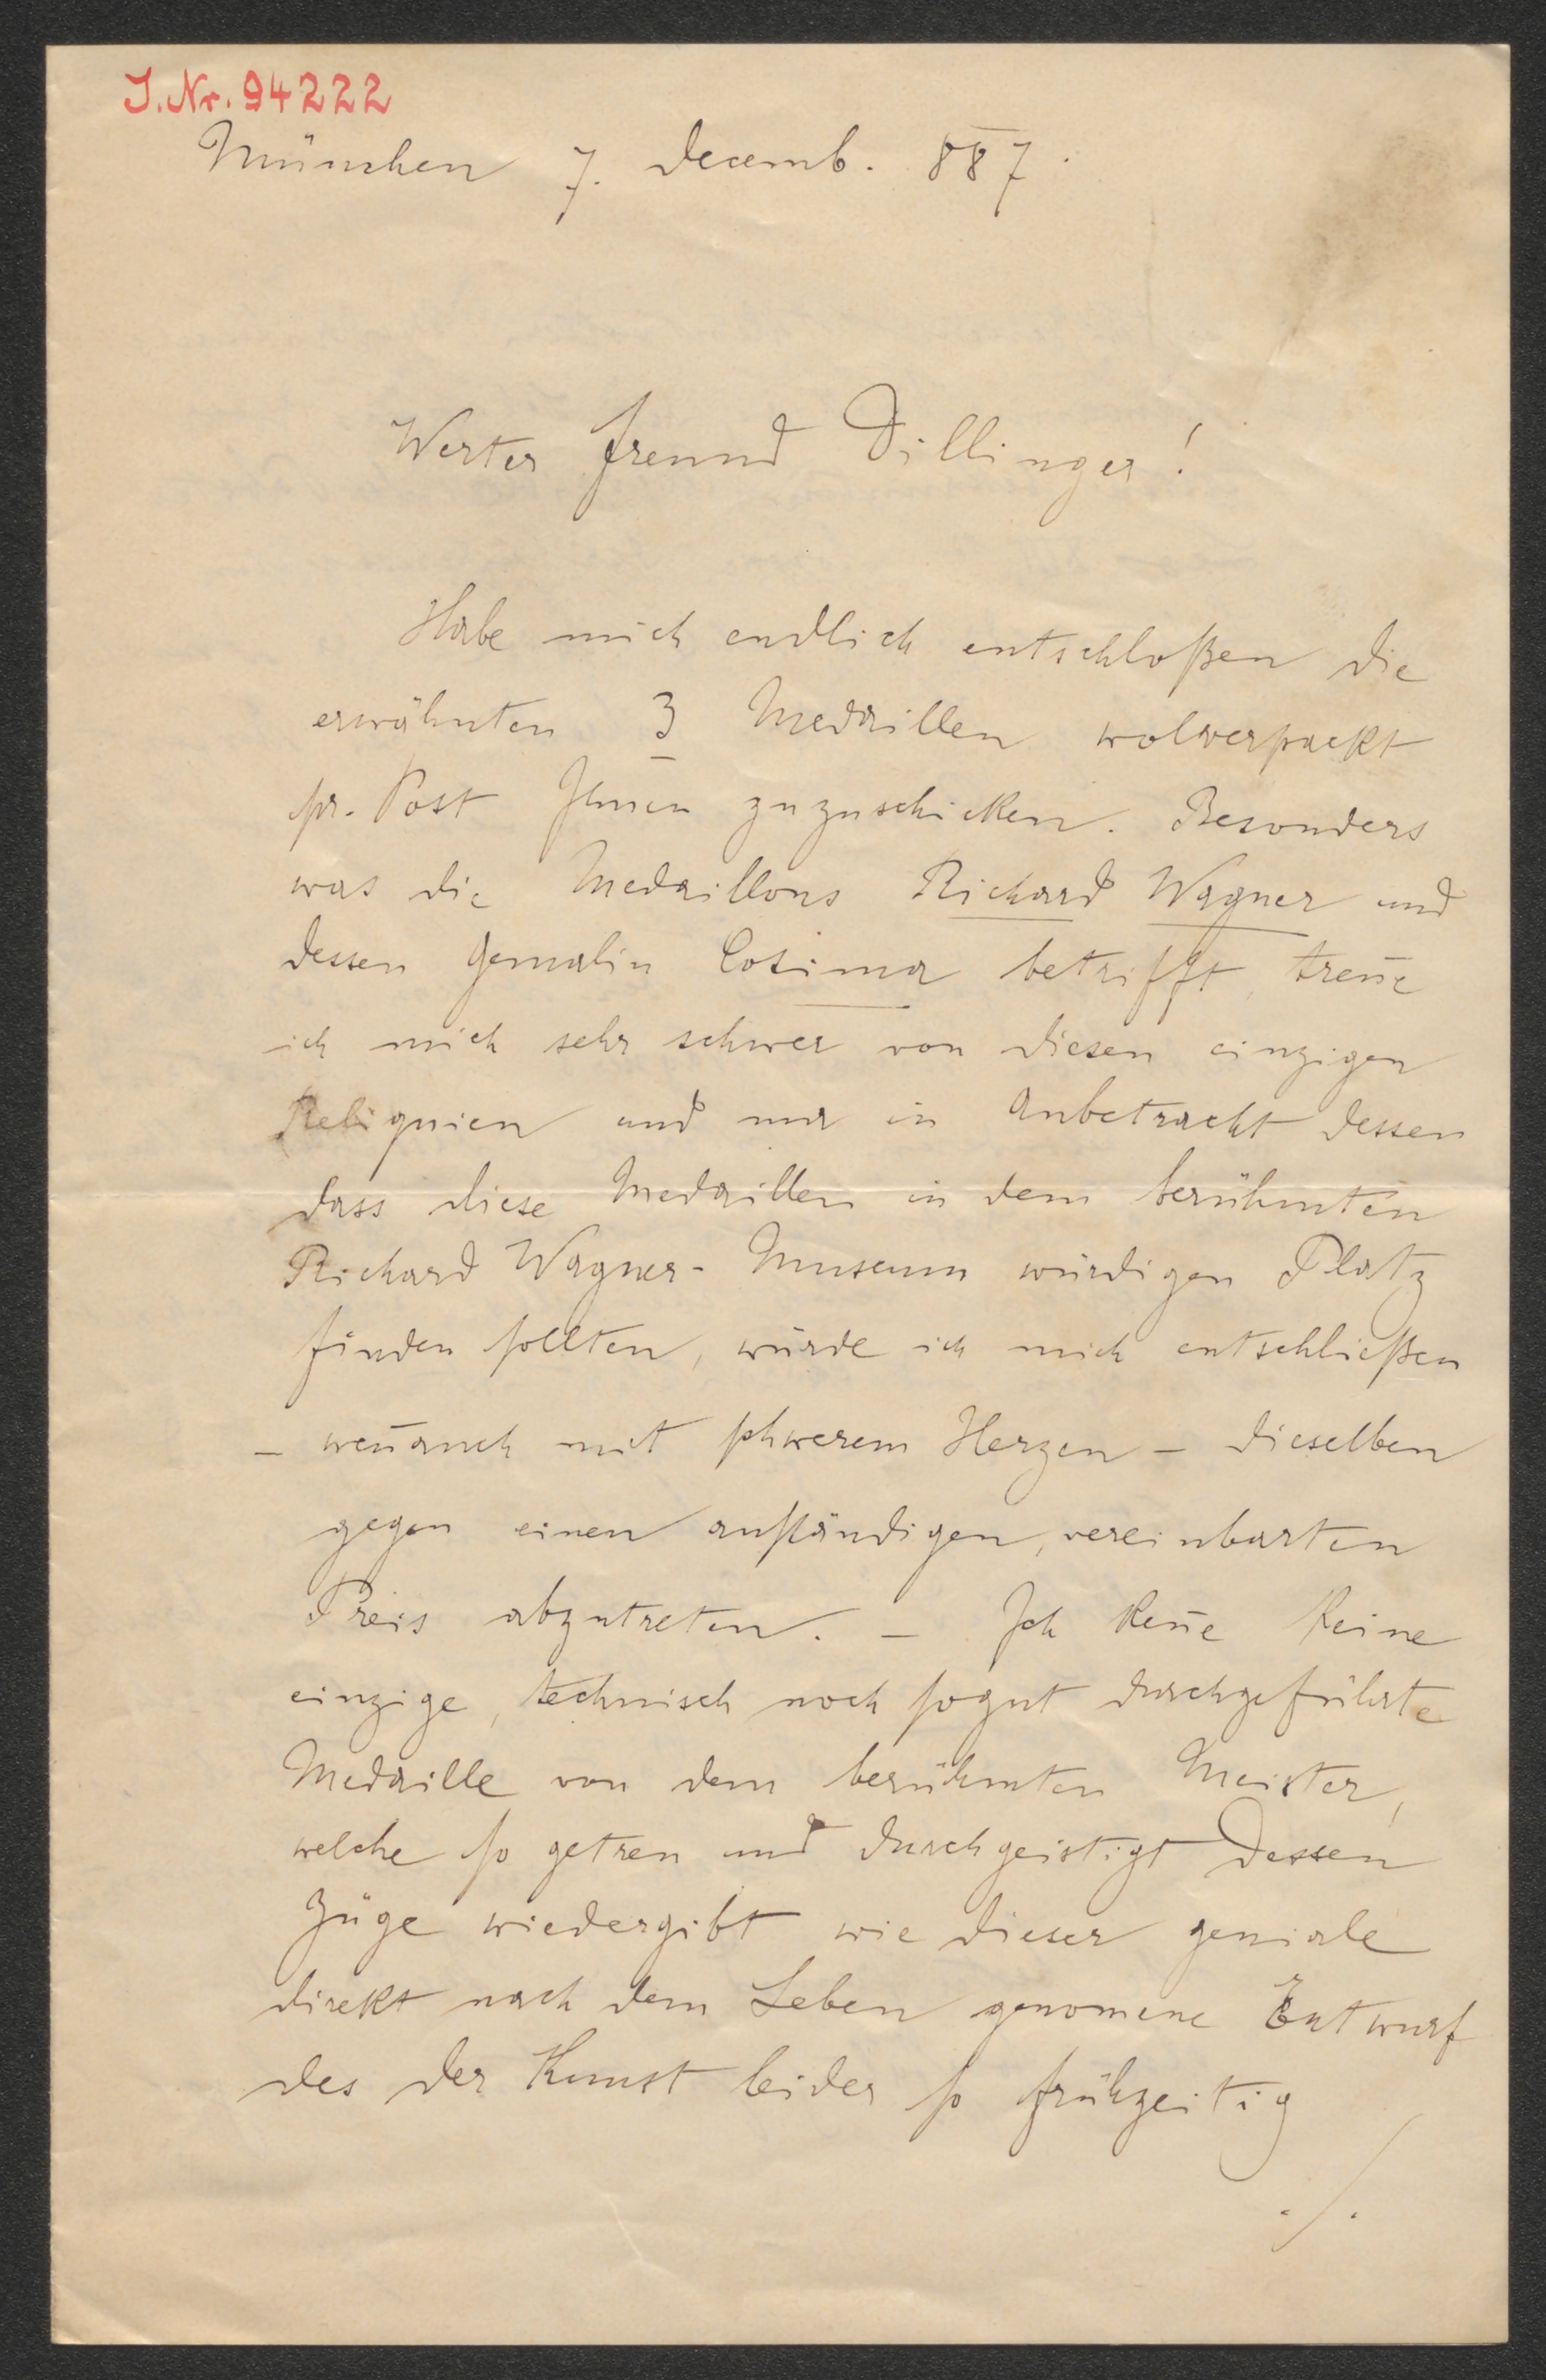 J. Nr. 94222
München 7. Decemb. 887.
Werter Freund Dillinger!
Habe mich endlich entschloßen die
erwähnten 3 Medaillen wolverpackt
pr. Post Ihnen zuzuschicken. Besonders
was die Medaillons Richard Wagner und
dessen Gemalin Cosima betrifft, treñe
ich mich sehr schwer von diesen einzigen
Reliquien und nur in Anbetracht dessen
dass diese Medaillen in dem berühmten
Richard Wagner- Museum würdigen Platz
finden sollten, würde ich mich entschließen
– weñauch mit schwerem Herzen – dieselben
gegen einen anständigen, vereinbarten
Preis abzutreten. – Ich keñe keine
einzige, technisch noch sogut durchgeführte
Medaille von dem berühmten Meister,
welche so getreu und durchgeistigt dessen
Züge wiedergibt wie dieser geniale
direkt nach dem Leben genomene Entwurf
des der Kunst leider so frühzeitig
./.